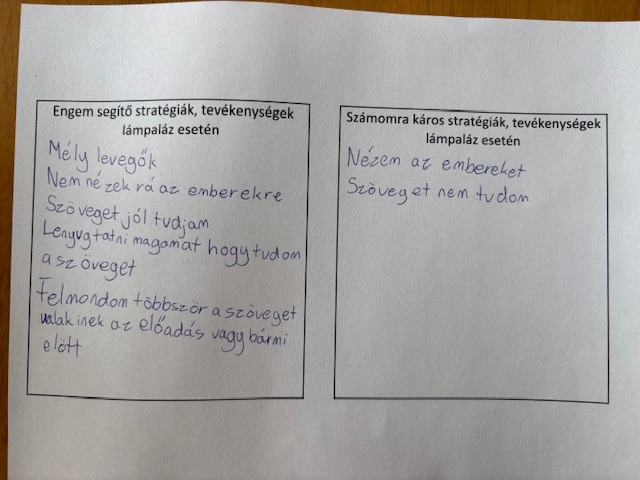 Engem segítő stratégiák, tevékenységek
lámpaláz esetén
Mély levegők
Nem nézek rá az emberekre
Szöveget jól tudjam
Lenyugtatni magamat hogy tudom
a szöveget
Felmondom többször a szöveget
valakinek az előadás vagy bármi
előtt
Számomra káros stratégiák, tevékenységek
lámpaláz esetén
Nézem az embereket
Szöveget nem tudom